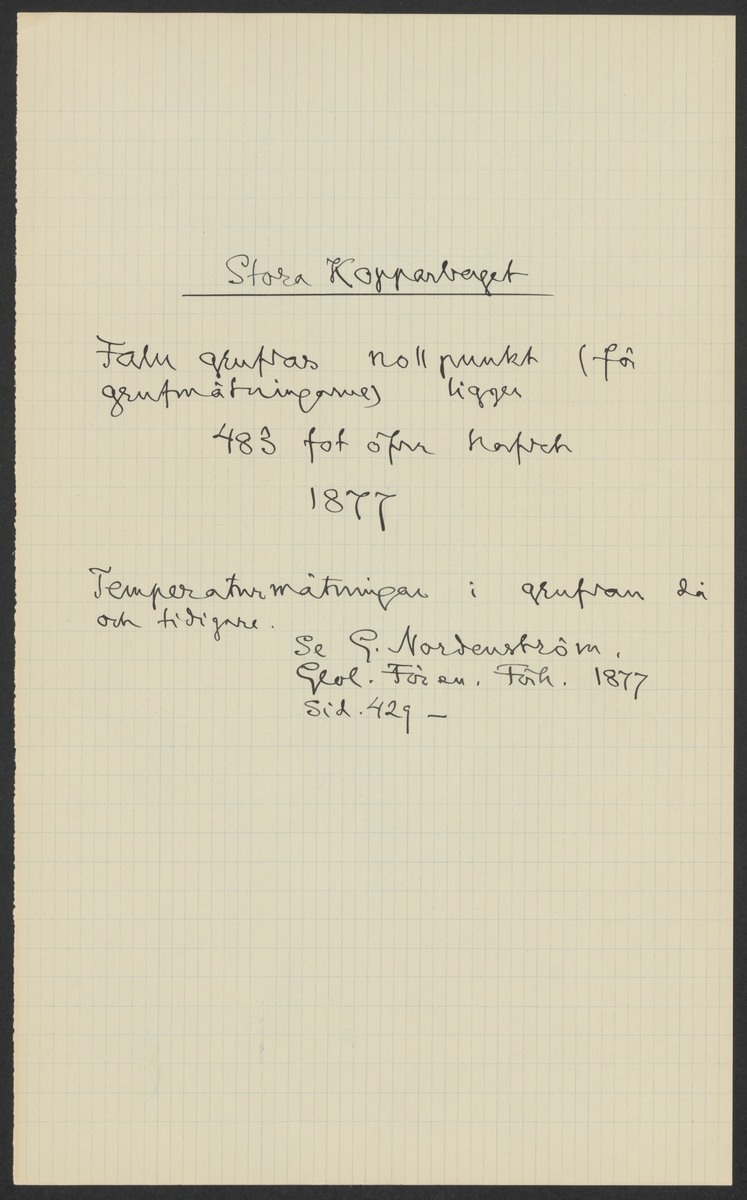 Stora Kopparberget
Falu grufvas nollpunkt (för
grufmätningarne) ligger
483 fot öfver hafvet
1877
Temperaturmätningar i grufvan då
och tidigare.
Se G. Nordenström.
Geol. Fören. Förh. 1877
Sid. 429 –